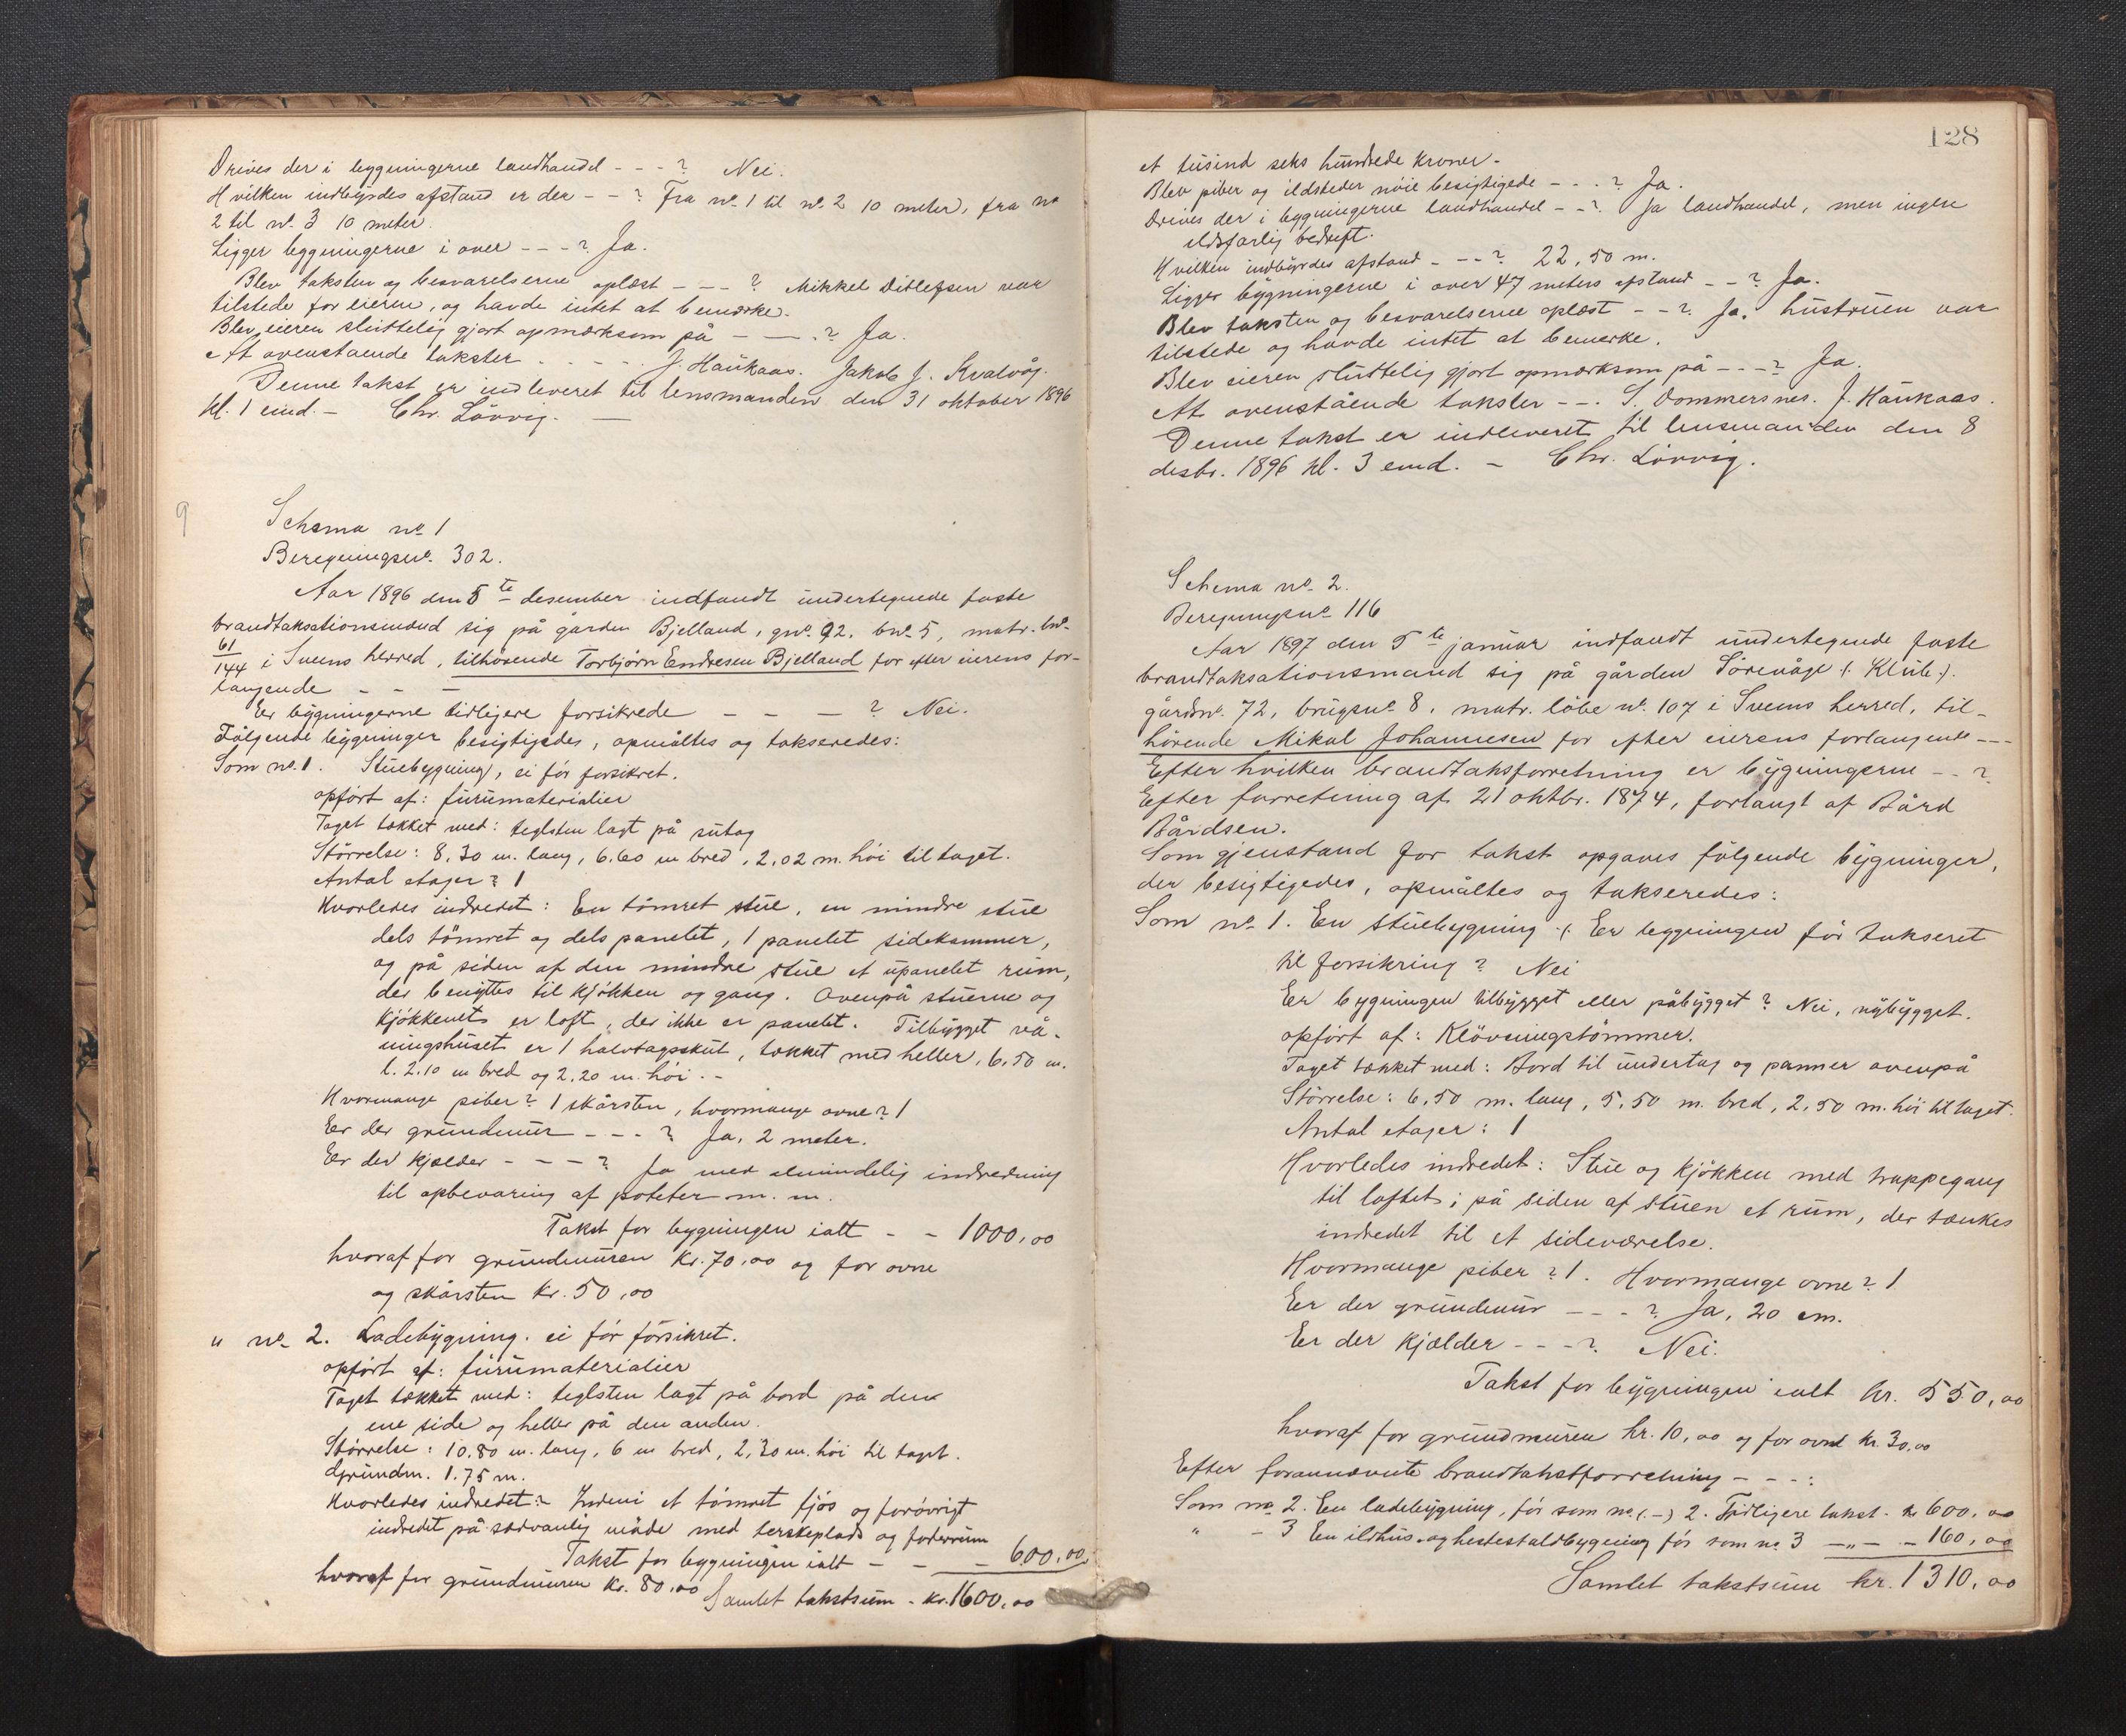 Drives der i bygningerne landhandel - - - ? Nei.
Hvilken indbyrdes afstand er der - - ? Fra no. 1 til no. 2 10 meter, fra no
2 til no. 3 10 meter.
Ligger bygningerne i over - - - ? Ja.
Blev taksten og besvarelserne oplæst - - - ? Mikkel Ditlefsen var
tilstede for eieren, og havde intet at bemærke.
Blev eieren sluttelig gjort opmærksom på - - - ? Ja.
At ovenstaende takster - - - - J. Haukaas. Jakob J. Kvalvåg.
Denne takst er indleveret til lensmanden den 31 oktober 1896
kl. 1 emd. - Chr. Lövvig. -
9
Schema no 1
Beregningsno. 302.
Aar 1896 den 5te desember indfandt undertegnede faste
brandtaksationsmænd sig på gården Bjelland, gno. 92, bno. 5, matr. lno.
61/144 i Sveens herred, tilhörende Torbjörn Endresen Bjelland for efter eierens for-
langende - - -
Er bygningerne tidligere forsikrede - - - ? Nei.
Fölgende bygninger besigtigedes, opmåltes og takseredes:
Som no. 1. Stuebygning, ei för forsikret.
opfört af: furumaterialier
Taget tækket med: teglsten lagt på sutag
Störrelse: 8,30 m. lang, 6,60 m bred, 2,02 m. höi til taget.
Antal etager? 1
Hvorledes indredet: En tömret stue, en mindre stue
dels tömret og dels panelet, 1 panelet sidekammer,
og på siden af den mindre stue et upanelet rum,
der benyttes til kjökken og gang. Ovenpå stuerne og
kjökkenet er loft, der ikke er panelet. Tilbygget vå-
ningshuset er 1 halvtagsskut, tækket med heller, 6,50 m.
l. 2,10 m bred og 2,20 m. höi. -
Hvormange piber? 1 skårsten, hvormange ovne? 1
Er der grundmur - - - ? Ja, 2 meter.
Er der kjælder - - - ? Ja med almindelig indredning
til opbevaring af poteter m. m.
Takst for bygningen ialt - - 1000,00
hvoraf for grundmuren kr. 70,00 og for ovne
og skårsten kr. 50,00
" no. 2. Ladebygning. ei för forsikret.
opfört af: furumaterialier
Taget tækket med: teglsten lagt på bord på den
ene side og heller på den anden.
Störrelse: 10,80 m. lang, 6 m bred, 2,30 m. höi til taget.
Grundm. 1.75 m.
Hvorledes indredet:- Indeni et tömret fjös og forövrigt
indredet på sædvanlig måde med terskeplads og foderrum
Takst for bygningen ialt - - - 600,00
hvoraf for grundmuren kr. 80,00
Samlet takstsum - kr. 1600,00
128
et tusind seks hundrede kroner -
Blev piber og ildsteder nöie besigtigede - - - ? Ja.
Drives der i bygningerne landhandel - - ? Ja landhandel, men ingen
ildsfarlig bedrift.
Hvilken indbyrdes afstand - - - ? 22,50 m.
Ligger bygningerne i over 47 meters afstand - - ? Ja.
Blev taksten og besvarelserne oplæst - - ? Ja. hustruen var
tilstede og havde intet at bemerke.
Blev eieren sluttelig gjort opmærksom på - - - ? Ja.
At ovenstående takster - - - S. Dommersnes. J. Haukaas.
Denne takst er indleveret til lensmanden den 8
desbr. 1896 kl. 3 emd. - Chr. Lövvig.
Schema no. 2.
Beregningsno 116
Aar 1897 den 5te januar indfandt undertegnede faste
brandtaksationsmænd sig på gården Sörevåge (: Klub:).
gårdsno. 72, brugsno 8, matr. löbe no. 107 i Sveens herred, til-
hörende Mikal Johannesen for efter eierens forlangende - - -
Efter hvilken brandtaksforretning er bygningerne - - ?
Efter forretning af 21 oktbr. 1874, forlangt af Bård
Bårdsen.
Som gjenstand for takst opgaves fölgende bygninger,
der besigtigedes, opmåltes og takseredes:
Som no. 1. En stuebygning (: Er bygningen för takseret
til forsikring? Nei
Er bygningen tilbygget eller påbygget? Nei, nybygget.
opfört af: Klövningstömmer.
Taget tækket med: Bord til undertag og panner ovenpå
Störrelse: 6,50 m. lang, 5,50 m. bred, 2,50 m. höi til taget.
Antal etager: 1
Hvorledes indredet: Stue og kjökken med trappegang
til loftet; på siden af stuen et rum, der tænkes
indredet til et sideværelse.
Hvormange piber? 1. Hvormange ovne? 1
Er der grundmur - - - ? Ja, 20 cm.
Er der kjælder - - - ? Nei.
Takst for bygningen ialt kr. 550,00
hvoraf for grundmuren kr. 10,00 og for ovne kr. 30,00
Efter forannævnte brandtakstforretning - - - :
Som no. 2. En ladebygning, för som no. (-) 2. Tidligere takst - kr 600,00
" - 3 En ildhus- og hestestaldbygning för som no. 3 - " - - 160,00
Samlet takstsum kr. 1310,00